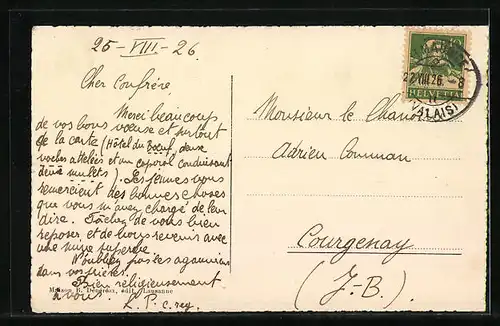 25-VIII-26
Cher Confrère,
Merci beaucoup
de vos bons vœux et surtout
de la carte (Hôtel du Bœuf, deux
vaches attelées et un caporal conduisant
deux mulets). Les jeunes vous
remercient des bonnes choses
que vous m'avez chargé de leur
dire. Tâchez de vous bien
reposer, et de nous revenir avec
une mine superbe.
N'oubliez pas les agauniens
dans vos prières.
Bien religieusement
à vous.
L. P. c. reg.
Maison H. Desgreux, édit., Lausanne
Monsieur le Chanoine
Adrien
Courgenay
(J-B.)
HELVETIA
VIII.26
(VALAIS)